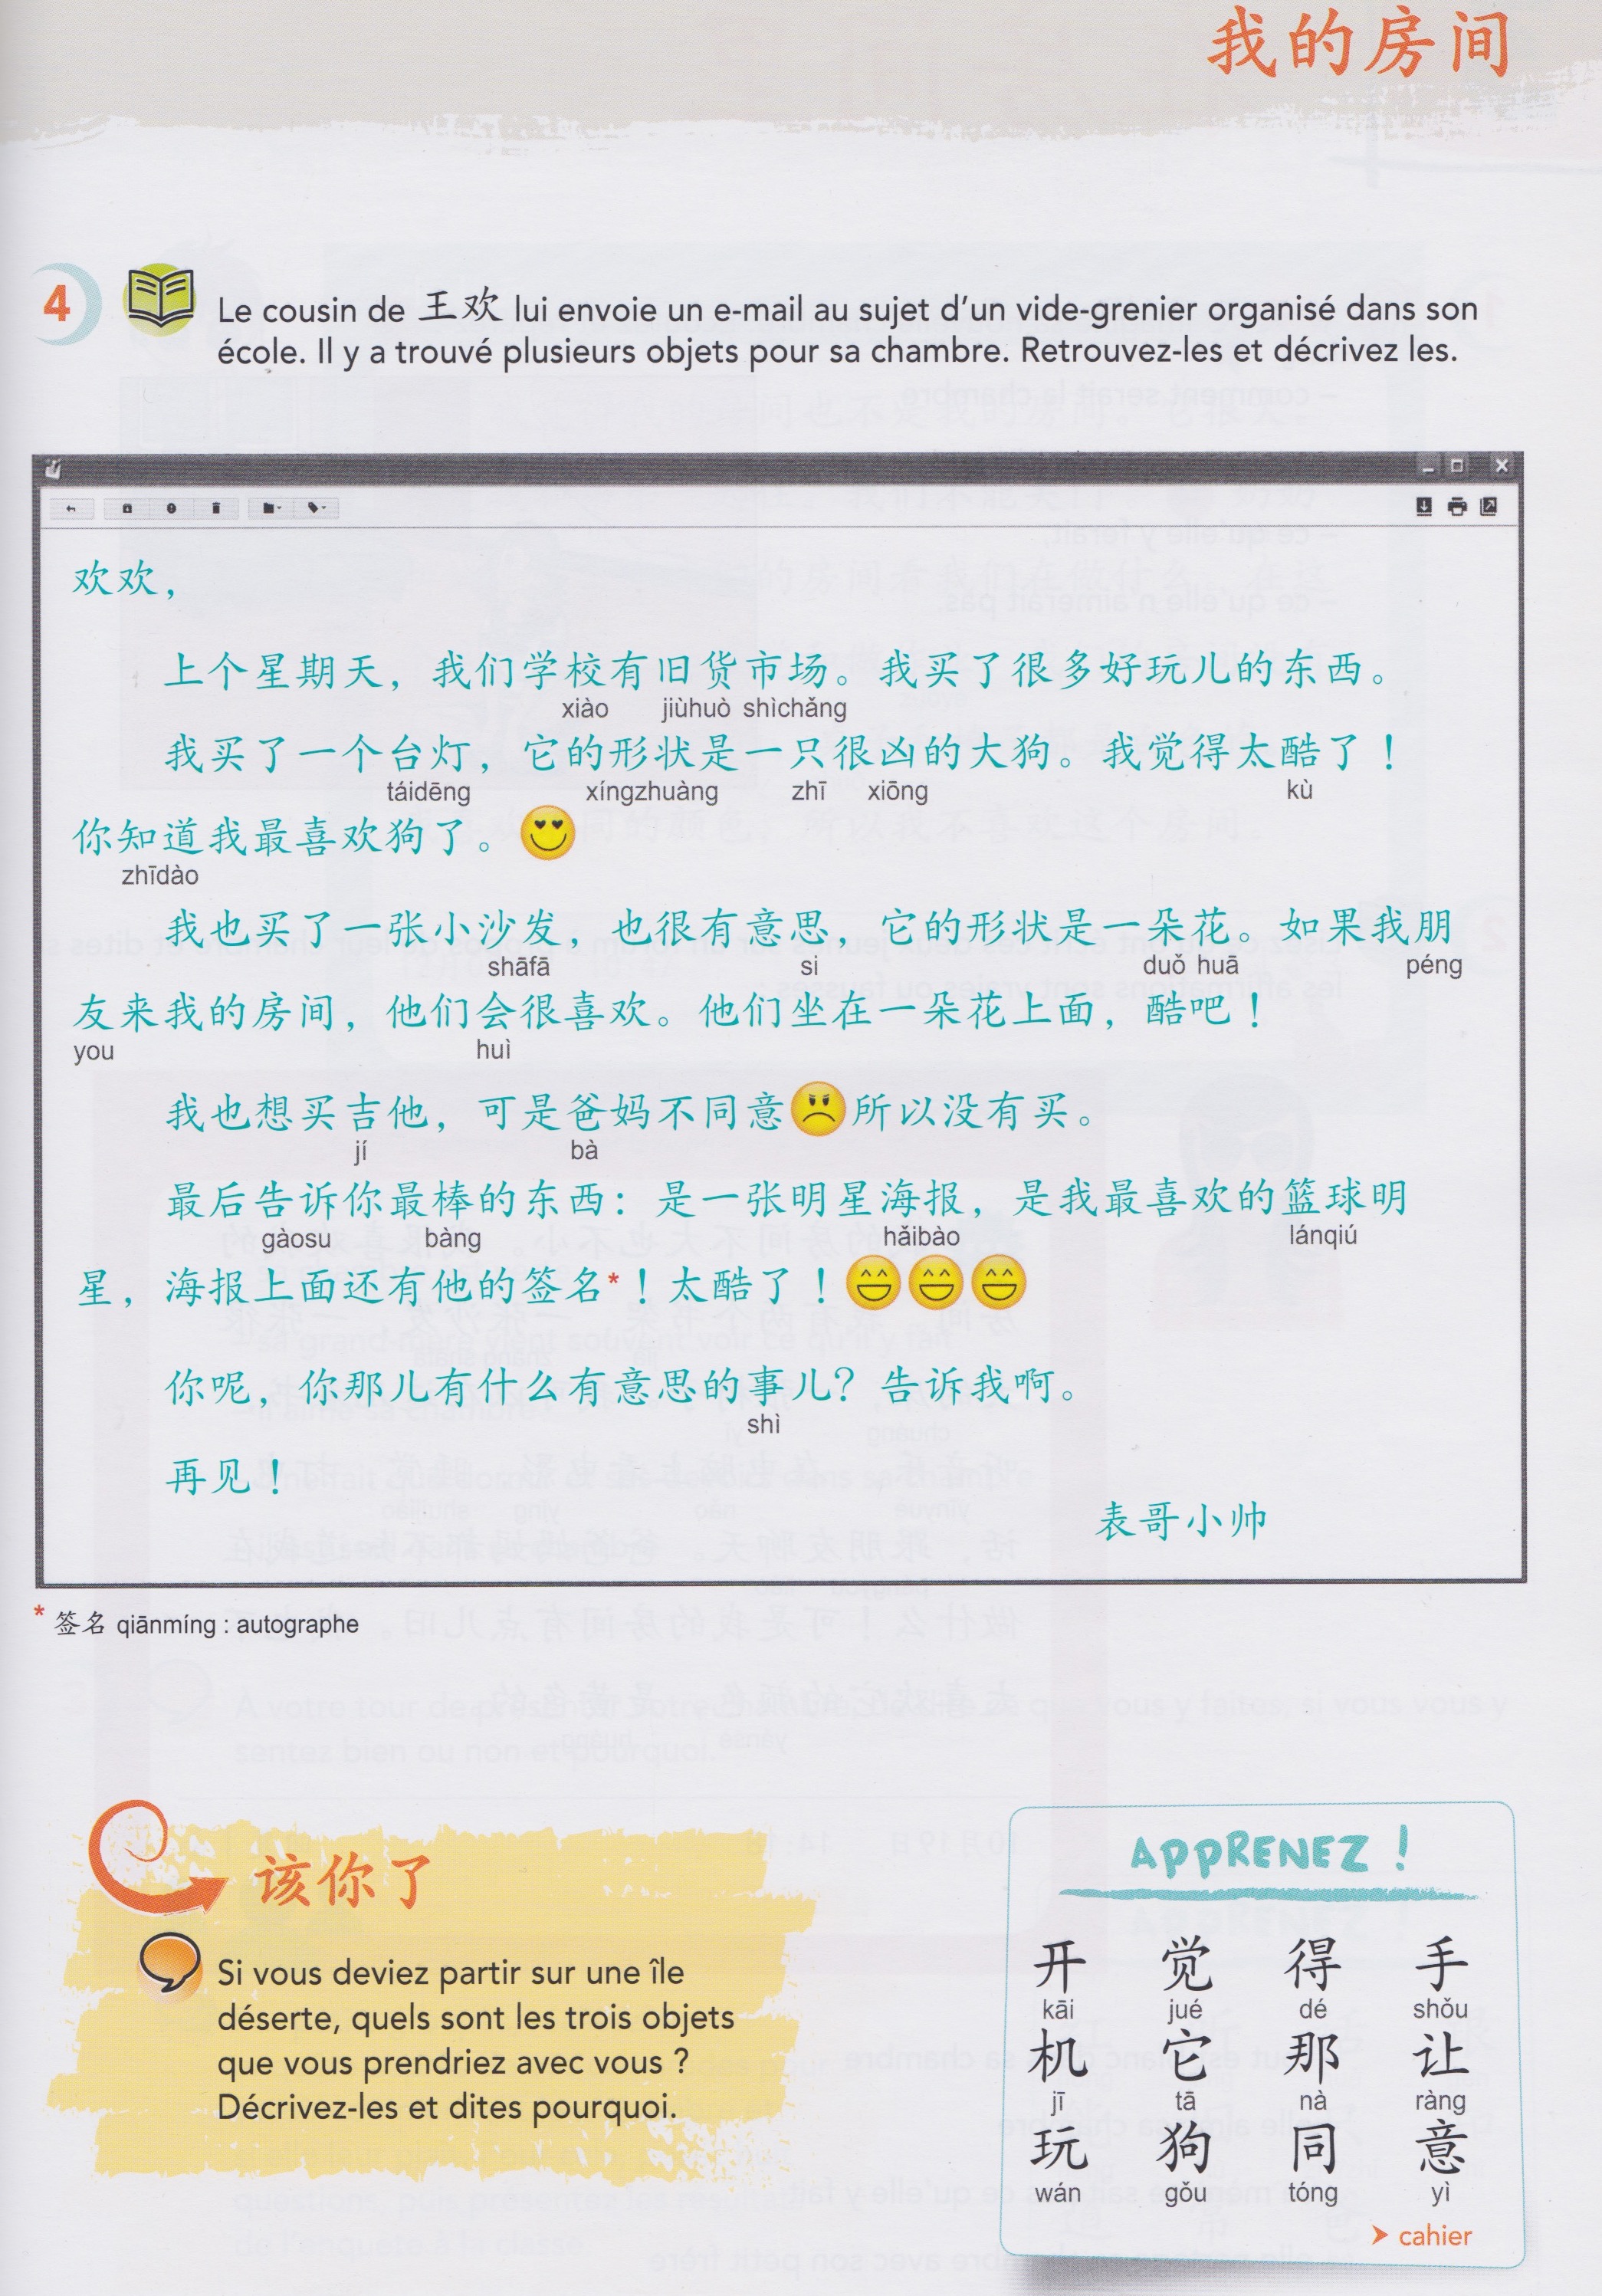 我的房间
4
Le cousin de 王欢 lui envoie un e-mail au sujet d'un vide-grenier organisé dans son
école. Il y a trouvé plusieurs objets pour sa chambre. Retrouvez-les et décrivez les.
欢欢，
上个星期天，我们学校有旧货市场。我买了很多好玩儿的东西。
xiào jiùhuò shìchǎng
我买了一个台灯，它的形状是一只很凶的大狗。我觉得太酷了！
táidēng xíngzhuàng zhī xiōng kù
你知道我最喜欢狗了。
zhīdào
我也买了一张小沙发，也很有意思，它的形状是一朵花。如果我朋
shāfā si duǒ huā péng
友来我的房间，他们会很喜欢。他们坐在一朵花上面，酷吧！
you huì
我也想买吉他，可是爸妈不同意所以没有买。
jí bà
最后告诉你最棒的东西：是一张明星海报，是我最喜欢的篮球明
gàosu bàng hǎibào lánqiú
星，海报上面还有他的签名*！太酷了！
你呢，你那儿有什么有意思的事儿？告诉我啊。
shì
再见！
表哥小帅
* 签名 qiānmíng : autographe
该你了
Si vous deviez partir sur une île
déserte, quels sont les trois objets
que vous prendriez avec vous ?
Décrivez-les et dites pourquoi.
APPRENEZ !
开 觉 得 手
kāi jué dé shǒu
机 它 那 让
jī tā nà ràng
玩 狗 同 意
wán gǒu tóng yì
cahier